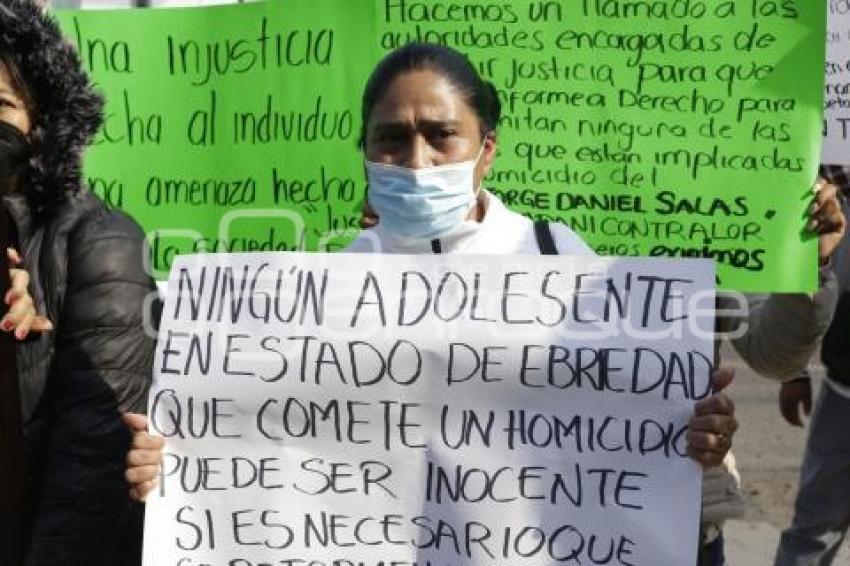 Una Injusticia
hecha al individuo
una amenaza hecha
la sociedad
Hacemos un llamado a las
autoridades encargadas de
justicia para que
informe a Derecho para
ninguna de las
que están implicadas
homicidio del
JORGE DANIEL SALAS
DANI CONTRALOR
exigimos
NINGÚN ADOLESENTE
EN ESTADO DE EBRIEDAD
QUE COMETE UN HOMICIDIO
PUEDE SER INOCENTE
SI ES NECESARIO QUE
enfoque